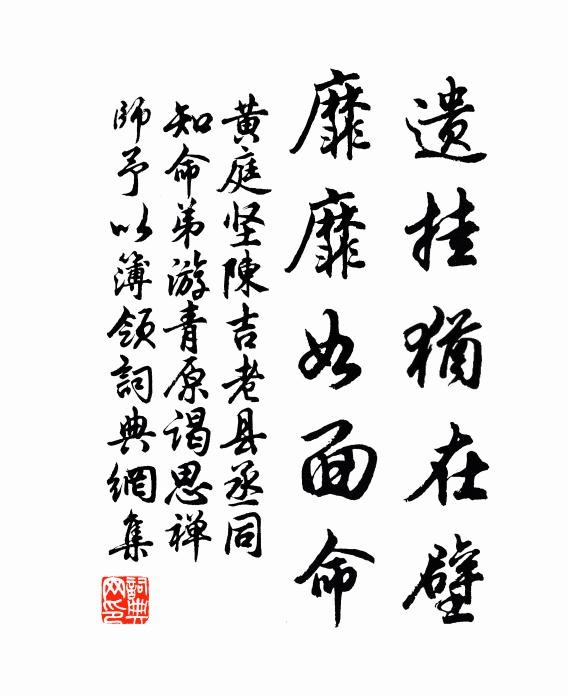 遗挂犹在壁
靡靡如面命
黄庭坚陳吉老县丞同
知命弟游青原谒思禅
师予以簿领詞典網集
詞典网印